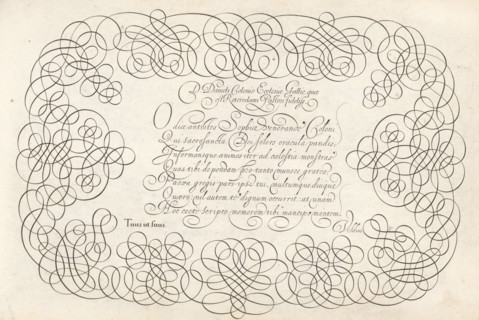 D. Danieli Colonio Ecclesiæ Gallic. quæ
Pastori fideliss.
O dia antistes Sophiæ Venerande Coloni
Qui sacrosancta Dei solers oracula pandis,
Informansque animas iter ad cælestia monstras:
Quas tibi dependam pro tanto munere grates,
Sacra gregis pars ipse tui, multumque diuque
Quæro: nil autem te dignum occurrit: at unam
Hoc certe scripto memorem tibi mancipo mentem.
Tuus ut suus